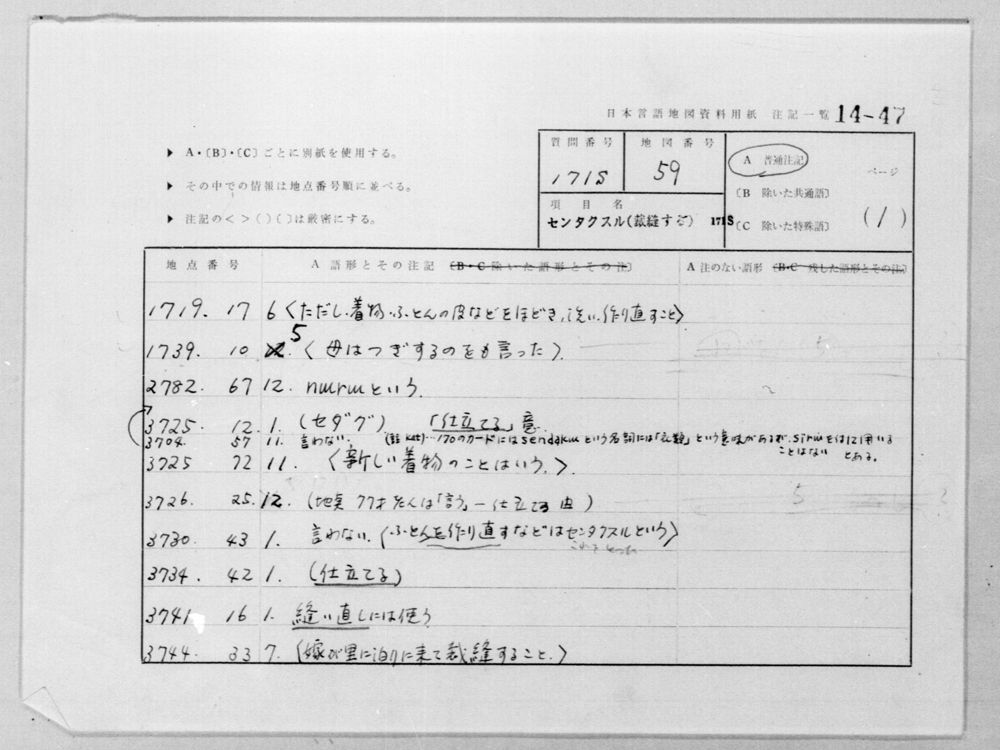 日本言語地図資料用紙 注記一覧 14-47
▶ A・〔B〕・〔C〕ごとに別紙を使用する。
▶ その中での情報は地点番号順に並べる。
▶ 注記の< >( )〔 〕は厳密にする。
質問番号 地図番号 A 普通注記 ページ
171S 59 〔B 除いた共通語〕
項目名 〔C 除いた特殊語〕 (1)
センタクスル(裁縫する) 171S
地点番号 A 語形とその注記 〔B・C 除いた語形とその注〕 A 注のない語形 〔B・C 残した語形とその注〕
1719. 17 6 <ただし、着物・ふとんの皮などをほどき、洗い、作り直すこと>
1739. 10 5. <母はつぎするのをも言った>.
2782. 67 12. nɯrɯという.
3725. 12. 1. (セダグ) 「仕立てる」意.
3704. 57 11. 言わない. …170のカードにはsendakɯという名詞には「衣類」という意味があるが、sirɯをはに用いる
ことはない とある。
3725 72 11. <新しい着物のことはいう.>.
3726. 25. 12. (地点 77才 は「言う」―仕立てる 由)
3730. 43 1. 言わない. (ふとんを作り直すなどはセンタクスルという)
3734. 42 1. (仕立てる)
3741 16 1. 縫い直しには使う
3744. 33 7. (嫁が里に泊りに来て裁縫すること.)